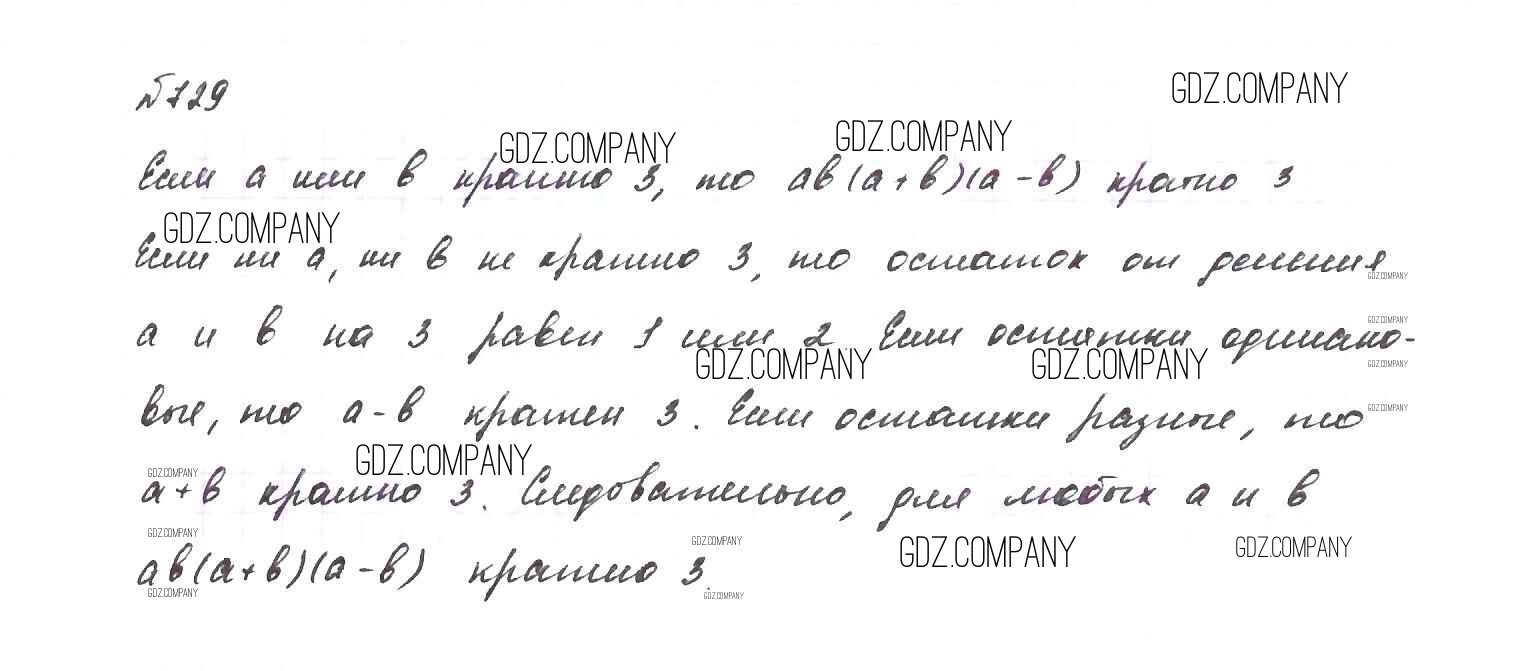 №729
GDZ.COMPANY
GDZ.COMPANY
GDZ.COMPANY
Если а или в кратно 3, то ав(а+в)(а-в) кратно 3
GDZ.COMPANY
Если ни а, ни в не кратно 3, то остаток от деления
GDZ.COMPANY
GDZ.COMPANY
а и в на 3 равен 1 или 2 Если остатки одинако-
GDZ.COMPANY
GDZ.COMPANY
GDZ.COMPANY
вые, то а-в кратен 3. Если остатки разные, то
GDZ.COMPANY
GDZ.COMPANY
GDZ.COMPANY
а+в кратно 3. Следовательно, для любых а и в
GDZ.COMPANY
GDZ.COMPANY
GDZ.COMPANY
GDZ.COMPANY
ав(а+в)(а-в) кратно 3.
GDZ.COMPANY
GDZ.COMPANY